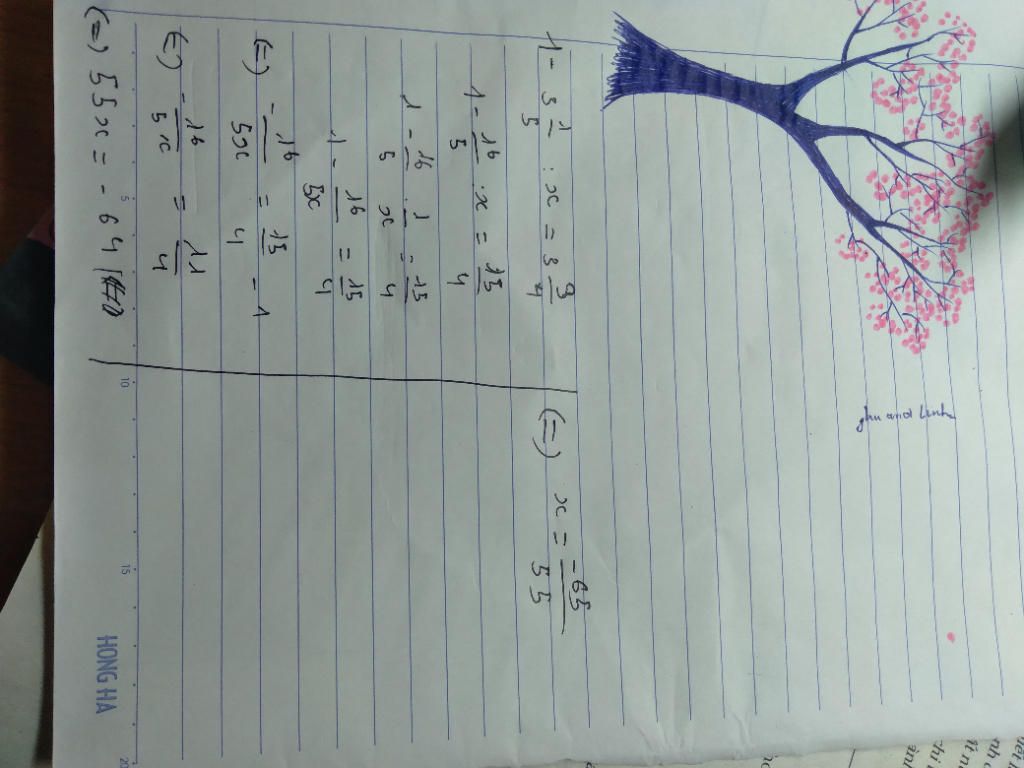 1 - 3 1/5 : x = 3 3/4
1 - 16/5 : x = 15/4
1 - 16/5 . 1/x = 15/4
1 - 16/5x = 15/4
(=) - 16/5x = 15/4 - 1
(=) - 16/5x = 11/4
(=) 55x = - 64
(=) x = -65/55
HONG HA
5
10
15
20